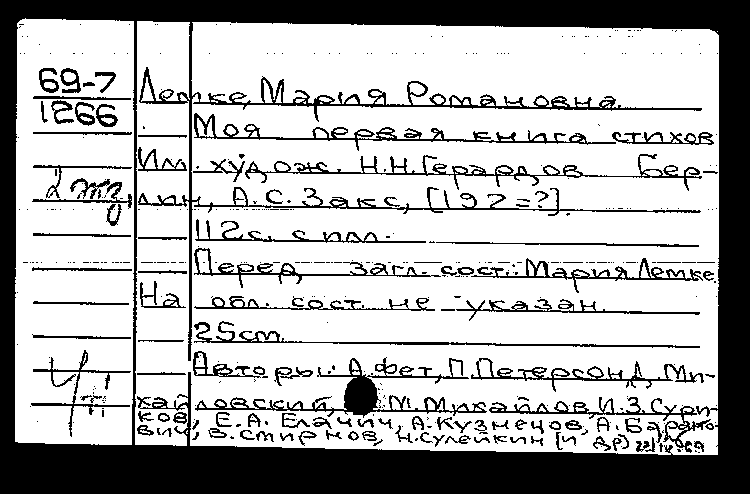 69-7
1266
Лемке, Мария Романовна.
Моя первая книга стихов
Им. худож. Н.Н.Герардов Бер-
2 экз.
лин, А.С.Закс, [192=?].
112с. с илл.
Перед загл. сост.: Мария Лемке.
На обл. сост. не указан.
25cm.
Авторы: А.Фет, П.Петерсон, Д. Ми-
хайловский, М.Михайлов, И.З.Сури-
ков, Е.А. Елачич, А.Кузнецов, А.Барано-
вич, В.Смирнов, Н.Сулейкин [и др]